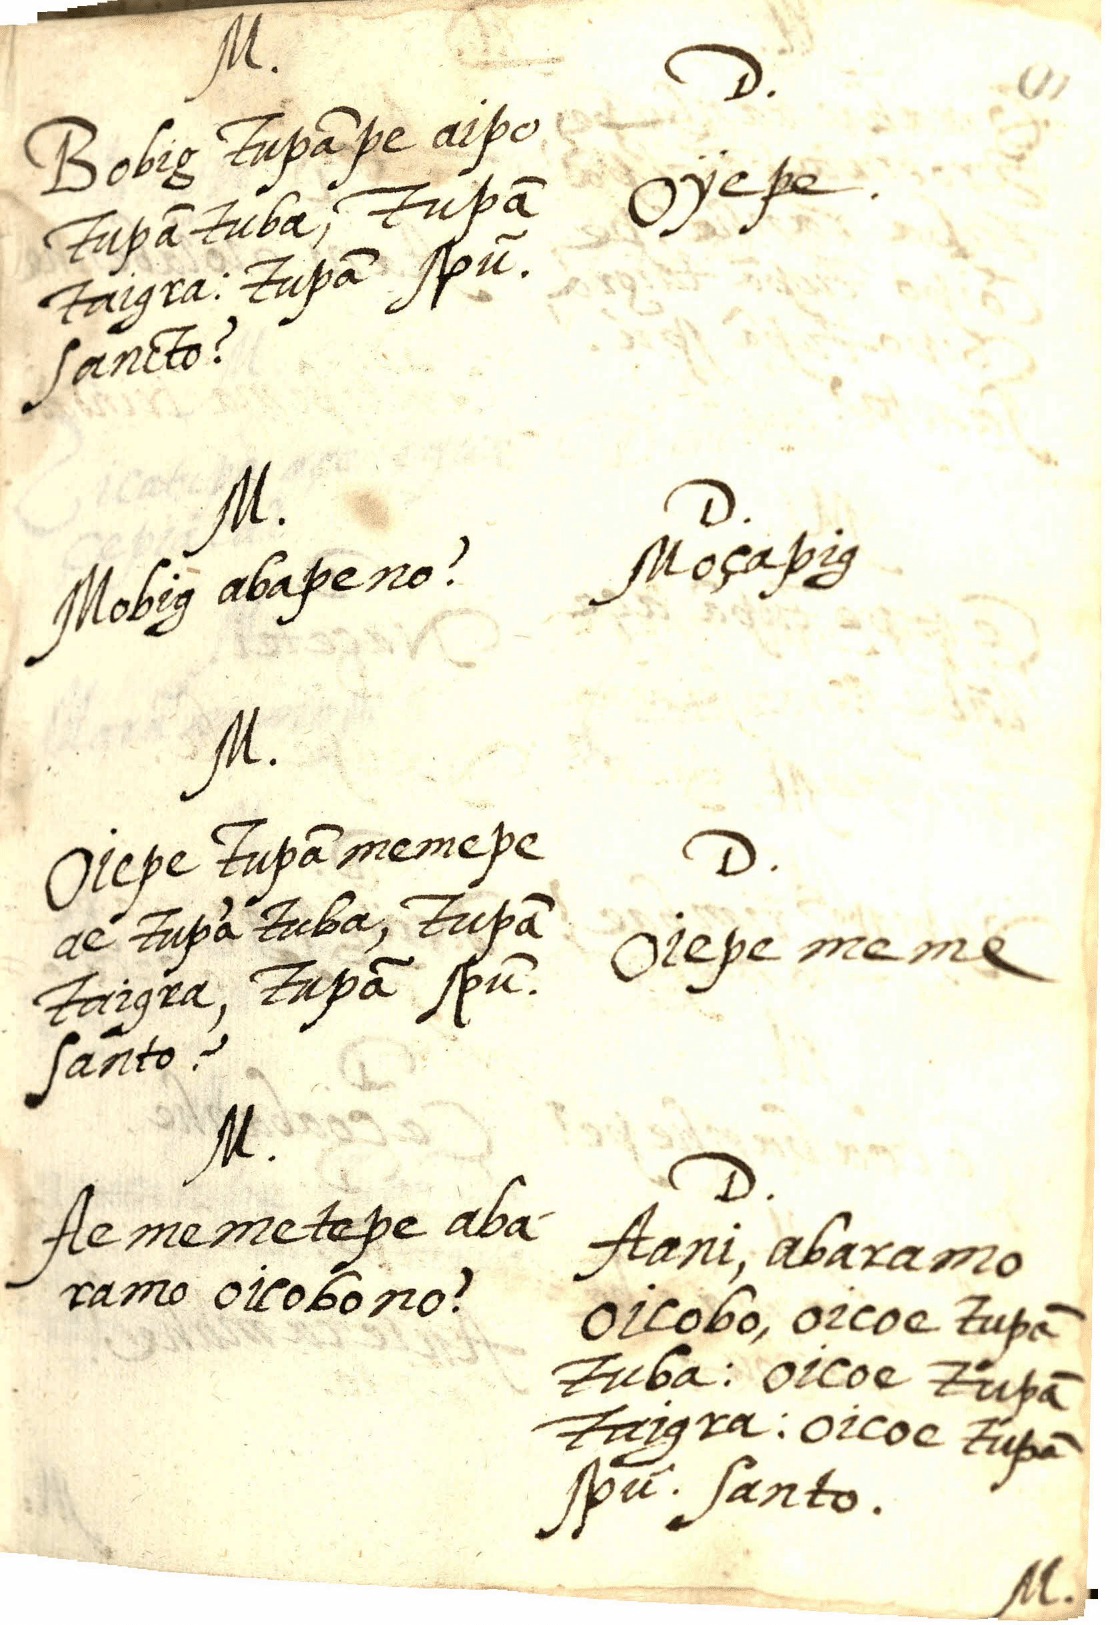 M.
Bobig Tupã pe aipo
Tupã tuba, Tupã
Taigra: Tupã spũ.
Sancto?
D.
Oÿepe.
M.
Mobig abapeno?
D.
Moçapig
M.
Oiepe Tupã memepe
ae Tupã tuba, Tupã
Taigra, Tupã spũ.
Santo?
D.
Oiepe meme
M.
Ae memetepe aba-
ramo oicobono?
D.
Aani, abaramo
oicobo, oicoe Tupã
Tuba: oicoe Tupã
Taigra: oicoe Tupã
spũ. Santo.
M.